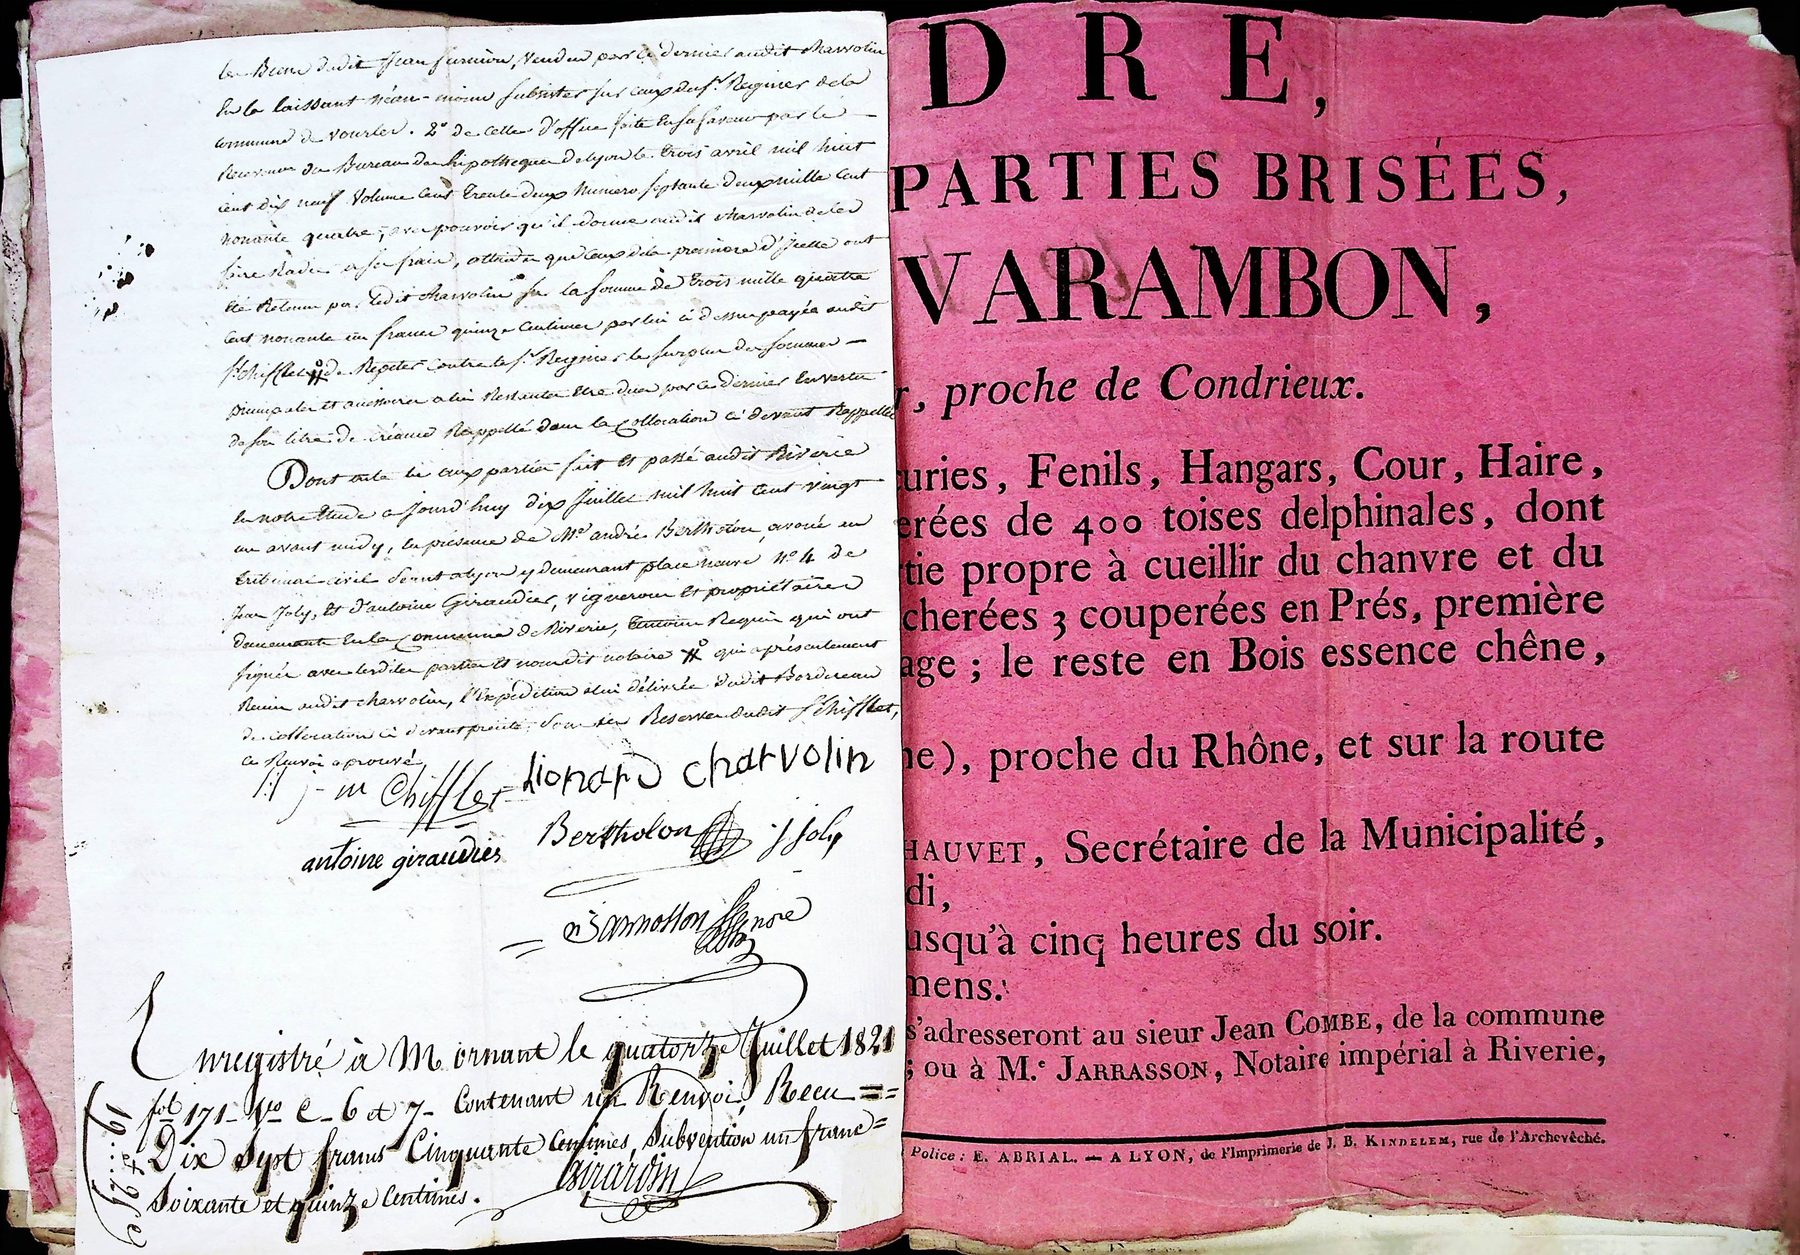 les Biens dudit Jean furnion, vendu par ce dernier audit charvolin
En la laissant néan-moins subsister sur ceux du Sr. Regnier de la
commune de vourles. 2o. de celle d'office faite En sa faveur par le
Receveur du Bureau des hipotheques de lyon le trois avril mil huit
cent dix neuf volume cent trente deux numero septante deux mille cent
nonante quatre, avec pouvoir qu'il donne audit charvolin de les
faire Radier a ses frais, attendu que ceux de la premiere d'Icelle ont
été Retenus par ledit charvolin sur la somme de trois mille quatre
cent nonante un francs quinze centimes par lui ci dessus payée audit
Sr. chifflet de Repeter contre le Sr. Regnier le surplus des sommes
principales et accessoires a lui Restantes Etre dues par ce dernier En vertu
de son titre de créance Rappellé dans la Collocation ci devant Rappellée
Dont acte lu aux parties fait Et passé audit Riverie
En notre Etude a jourd'huy dix juillet mil huit cent vingt
un avant midy, En présence de Me. andré Bertholon, avoué au
tribunal civil Séant a lyon y demeurant place neuve no. 4 de
Jean Joly, Et d'antoine Giraudier, vignerons Et propriétaires
demeurants En la Commune de Riverie, témoins Requis qui ont
signés avec lesdites parties Et nous dit notaire qui a présentement
Remis audit charvolin, l'Expédition a lui délivrée dudit Bordereau
de collocation ci devant précité sous les Reserves dudit Sr. chifflet,
ce Renvoi aprouvé
j-m Chifflet Lionard charvolin
antoine giraudier Bertholon j joly
Jarrosson nore
Enregistré à Mornant le quatorze Juillet 1821
fol 171 Vo C. 6 et 7 Contenant un Renvoi, Recu
Dix Sept francs Cinquante Centimes, Subvention un franc
Soixante et quinze Centimes. Girardin
19..f 25c
DRE,
PARTIES BRISÉES,
VARAMBON,
r, proche de Condrieux.
curies, Fenils, Hangars, Cour, Haire,
erées de 400 toises delphinales, dont
tie propre à cueillir du chanvre et du
cherées 3 couperées en Prés, première
age ; le reste en Bois essence chêne,
ne), proche du Rhône, et sur la route
HAUVET, Secrétaire de la Municipalité,
di,
usqu'à cinq heures du soir.
mens.
s'adresseront au sieur Jean COMBE, de la commune
; ou à M.e JARRASSON, Notaire impérial à Riverie,
Police : E. ABRIAL. — A LYON, de l'Imprimerie de J. B. KINDELEM, rue de l'Archevêché.